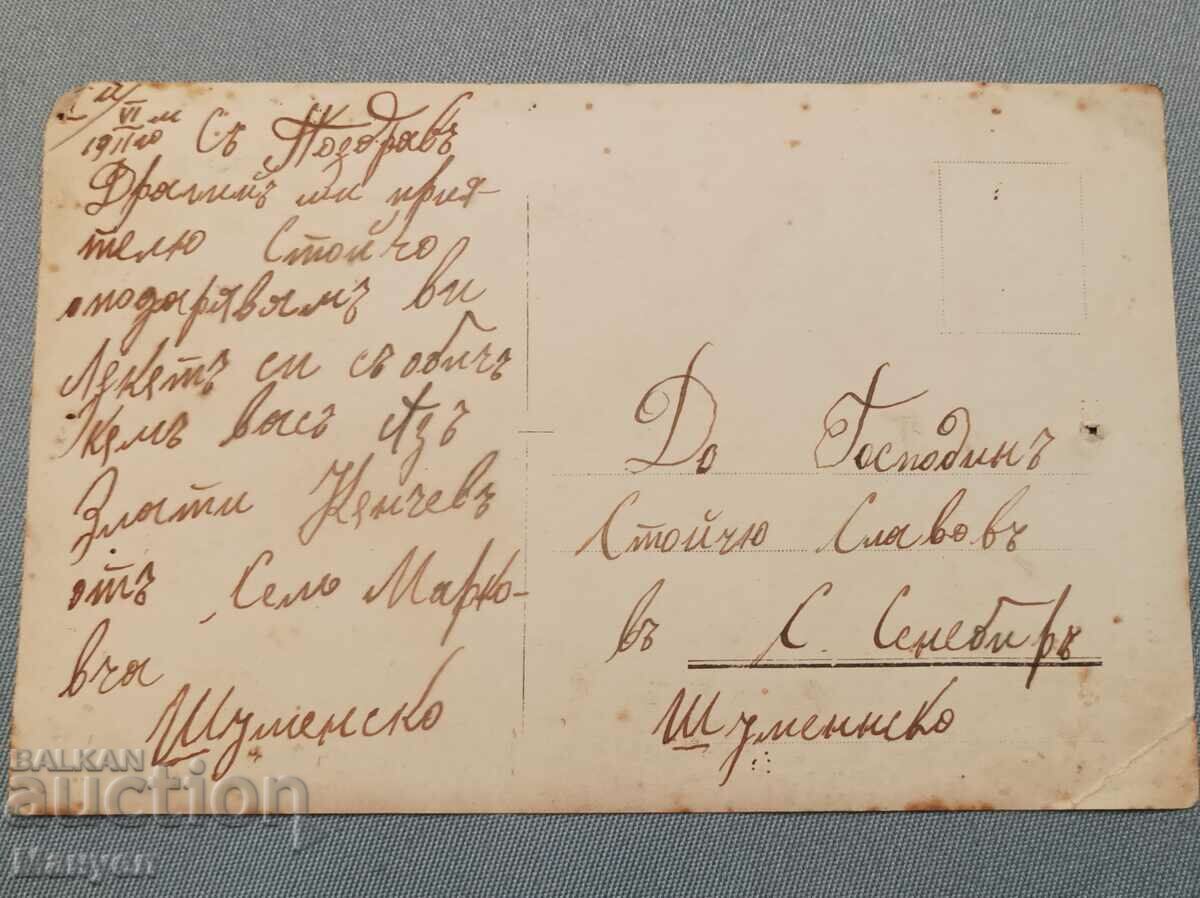 VI м
1911 го Съ Поздравъ
Драгий ми прия-
телю Стойчо
подарявамъ ви
си съ обичъ
къмъ васъ Азъ
Злати Кѫнчевъ
отъ Село Марко-
вча
Шуменско
До Господинъ
Стойчю Славовъ
въ С. Сенебиръ
Шуменнско
BALKAN
auction